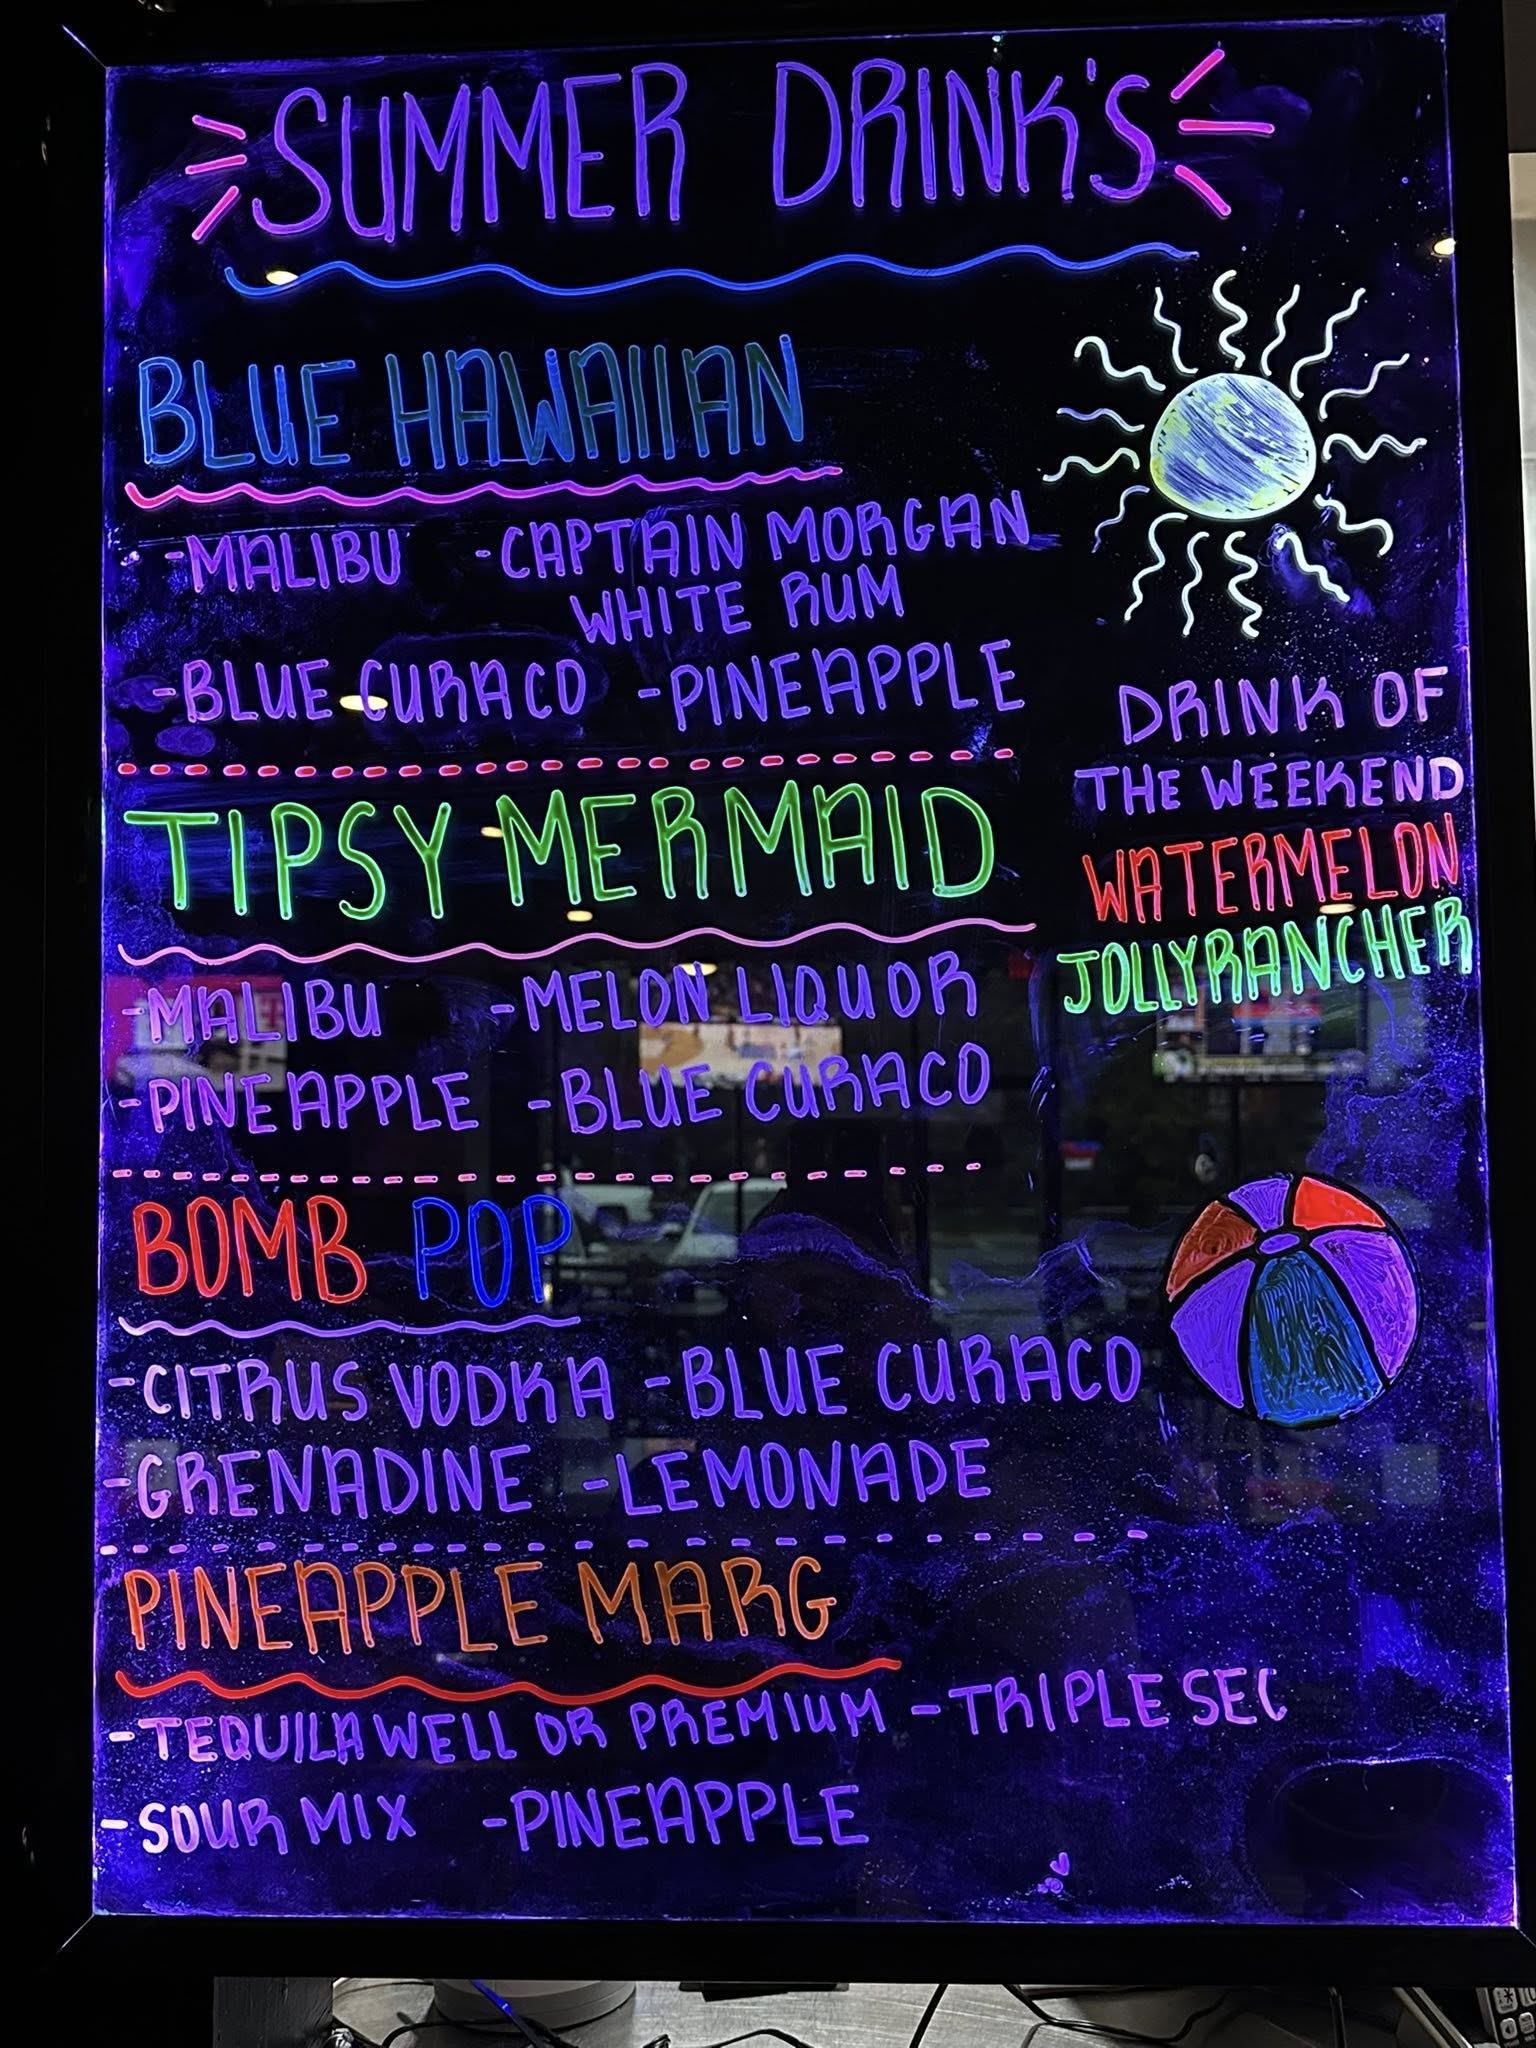 SUMMER DRINK'S
BLUE HAWAIIAN
-MALIBU -CAPTAIN MORGAN
WHITE RUM
-BLUE CURACO -PINEAPPLE
DRINK OF
THE WEEKEND
WATERMELON
JOLLYRANCHER
TIPSY MERMAID
-MALIBU -MELON LIQUOR
-PINEAPPLE -BLUE CURACO
BOMB POP
-CITRUS VODKA -BLUE CURACO
-GRENADINE -LEMONADE
PINEAPPLE MARG
-TEQUILA WELL OR PREMIUM -TRIPLE SEC
-SOUR MIX -PINEAPPLE